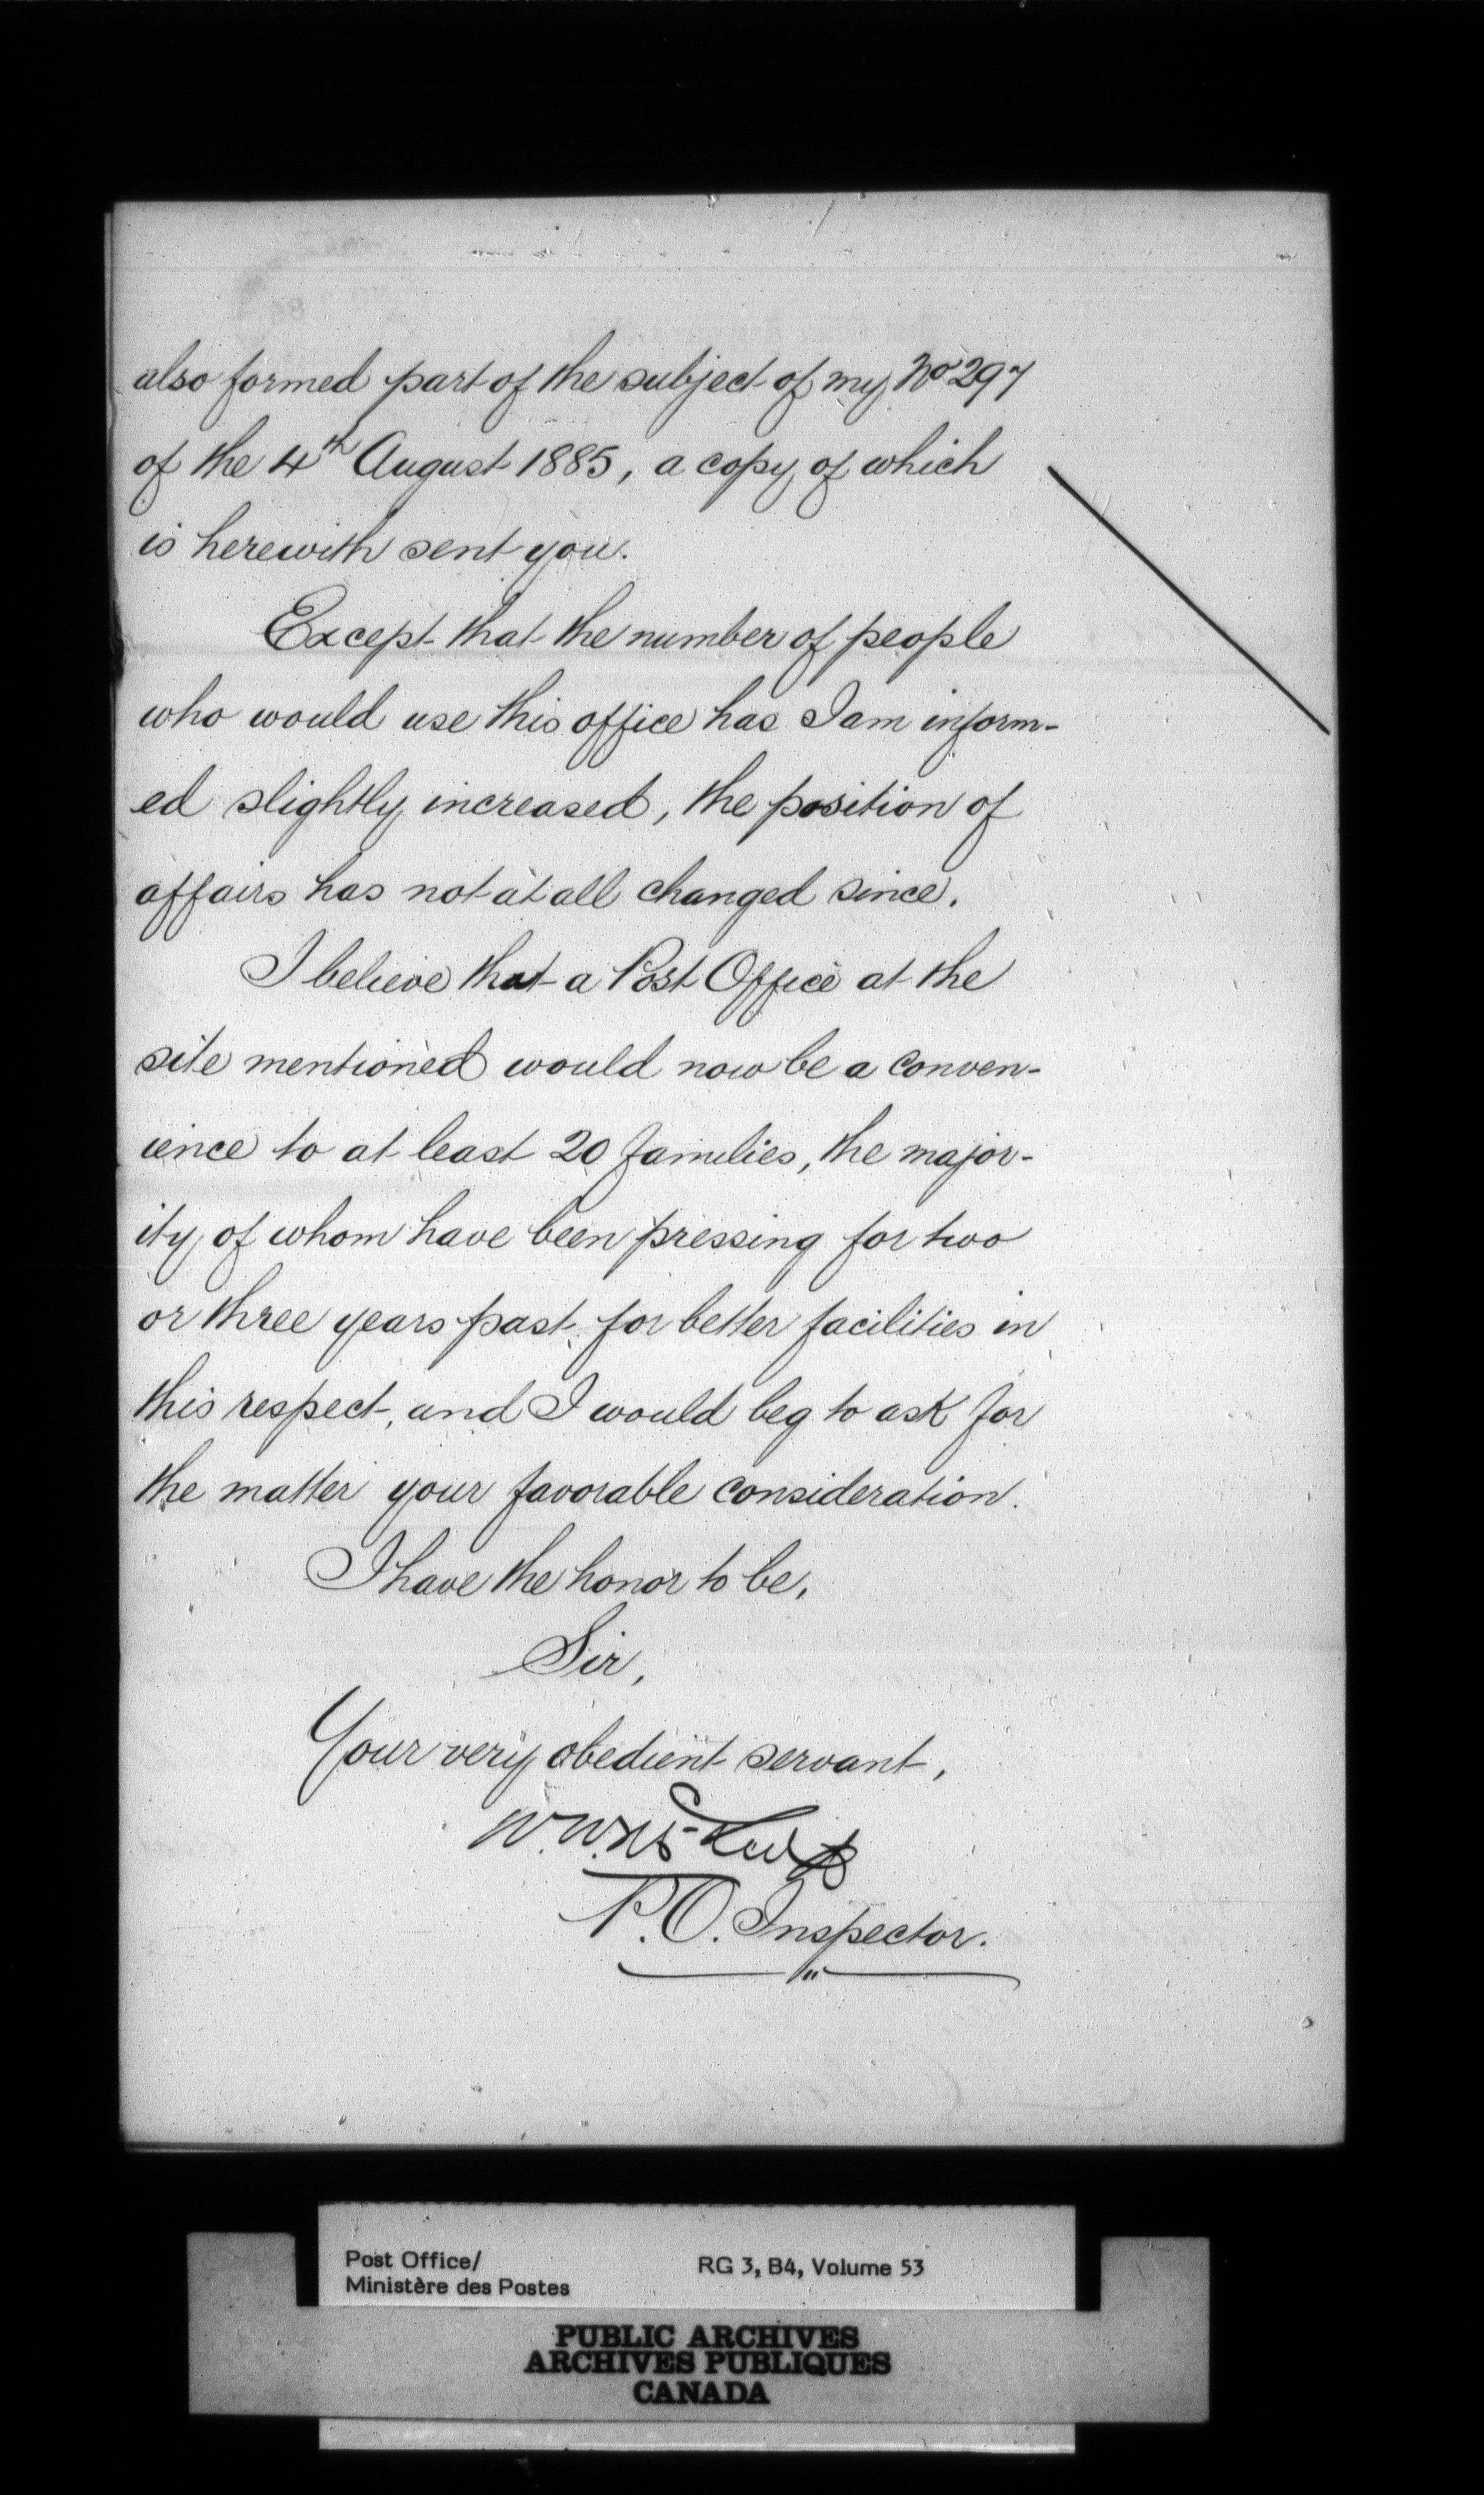 also formed part of the subject of my No 297
of the 4th August 1885, a copy of which
is herewith sent you.
Except that the number of people
who would use this office has I am inform-
ed slightly increased, the position of
affairs has not at all changed since.
I believe that a Post Office at the
site mentioned would now be a conven-
ience to at least 20 families, the major-
ity of whom have been pressing for two
or three years past for better facilities in
this respect, and I would beg to ask for
the matter your favorable consideration.
I have the honor to be,
Sir,
Your very obedient servant,
W.W.
P.O. Inspector.
Post Office/
Ministère des Postes
RG 3, B4, Volume 53
PUBLIC ARCHIVES
ARCHIVES PUBLIQUES
CANADA